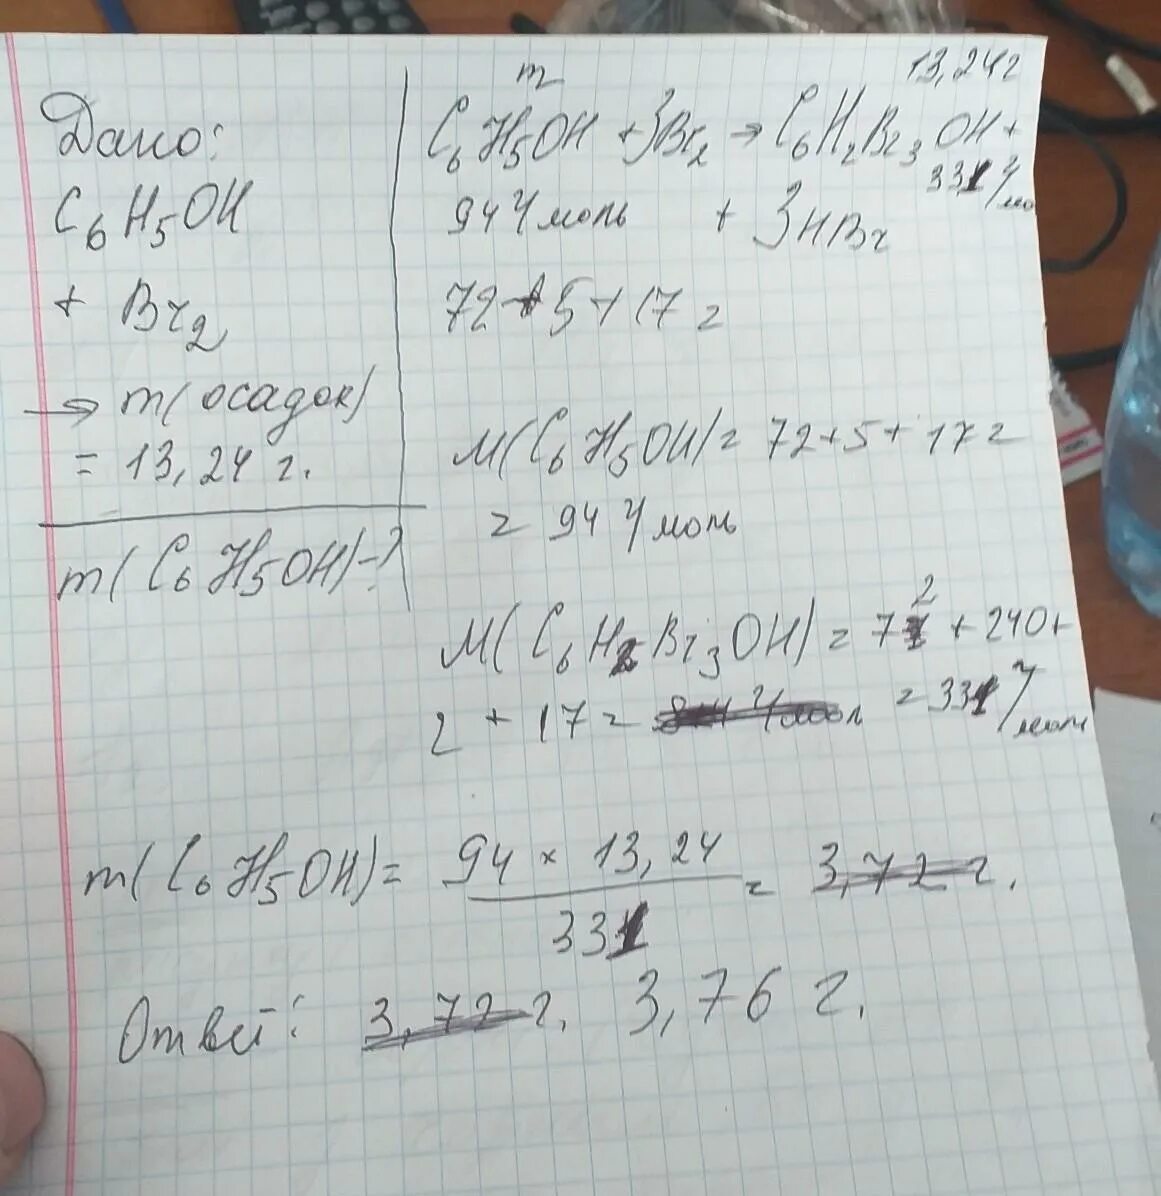 Дано:
C₆H₅OH
+ Br₂
→ m(осадок)
= 13,24 г.
m(C₆H₅OH)-?
m
13,24г
C₆H₅OH + 3Br₂ → C₆H₂Br₃OH +
94 г/моль
331 г/мо
+ 3HBr
72+5+17=
M(C₆H₅OH)= 72+5+17=
= 94 г/моль
M(C₆H₂Br₃OH)= 72 + 240+
2 + 17 = = 331 г/моль
m(C₆H₅OH)= 94 × 13,24 / 331 = 3,72 г.
Ответ: 3,72 г. 3,76 г.